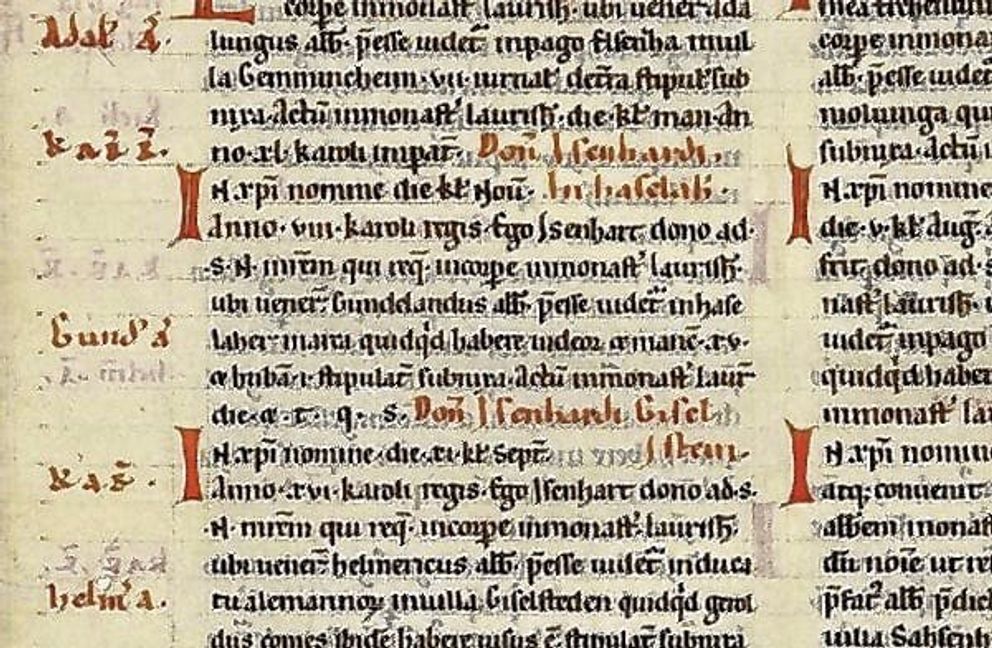 Adal' a.
corpe inmonast' laurish. ubi uener' ada
lungus abb. p̄esse uidet' inpago Elsenba inuil
la Gemmincheim. vii. iurnal' de t̄ra stipul' sub
nixa. Actū inmonast' laurish. die. kl' man. An
K a z i.
no. xl. karoli impat̄. Don̄ Isenhardi.
IN xp̄i nomine die kl' Nou̅. In haselah'.
Anno. viii. karoli regis. Ego Isenhart dono ad.
S. N. m̄rem qui req̄. incorpe inmonast' laurish.
ubi uener'. Gundelandus abb. p̄esse uidet' inhase
Gund' a
laher marca quidq̇d habere uideor & manc̄. xv.
& hubā. i. stipulat' subnixa. Actū inmonast' laur̄
die. & t. q. s. Don̄ Isenhardi. Gisel
IN xp̄i nomine. die. xi. kl' Sept̄. Istein.
K a r̄.
Anno. xvi. karoli regis. Ego Isenhart dono ad. s.
N. m̄rem qui req̄. incorpe inmonast' laurish.
ubi uener' helmericus abb. p̄esse uidet' induca
helm' a.
tu alemannoꝝ inuilla Giselsteden quidq̇d gerol
dus comes ibidē habere uisus ē. stipulat' subnixa
corpe inmona
abb. p̄esse uidet'
molunga qu
subnixa. Actū i
IN xp̄i nomine
die. v. kl' Aug.
frit dono ad. s
nast' laurish. u
uidet' inpago
quidq̇d haber
inmonast' la
IN xp̄i nomin
atq; conuenit
abbem monast
dn̄i noīe ut re
p̄fat' abb p̄dict
uilla Sahsenh